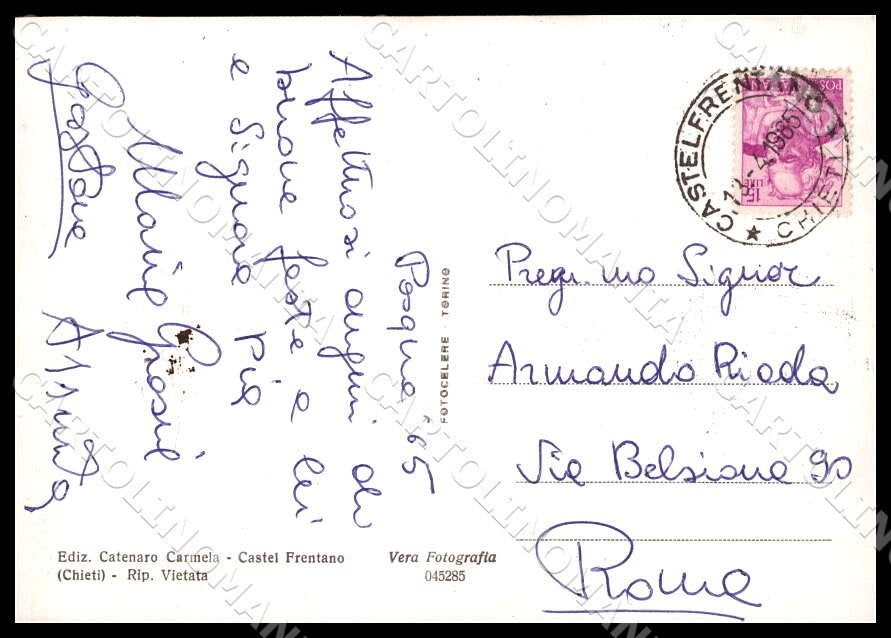 Pasqua '65
Affettuosi auguri di
buone feste a lei
e Signora Pia
Maria
Gastone
Assunta
POSTE ITALIANE
15 LIRE
CASTELFRENTANO
CHIETI
13-4-1965
Preg.mo Signor
Armando Rioda
Via Belsiana 90
Roma
FOTOCELERE - TORINO
Ediz. Catenaro Carmela - Castel Frentano
(Chieti) - Rip. Vietata
Vera Fotografia
045285
CARTOLINOMANIA